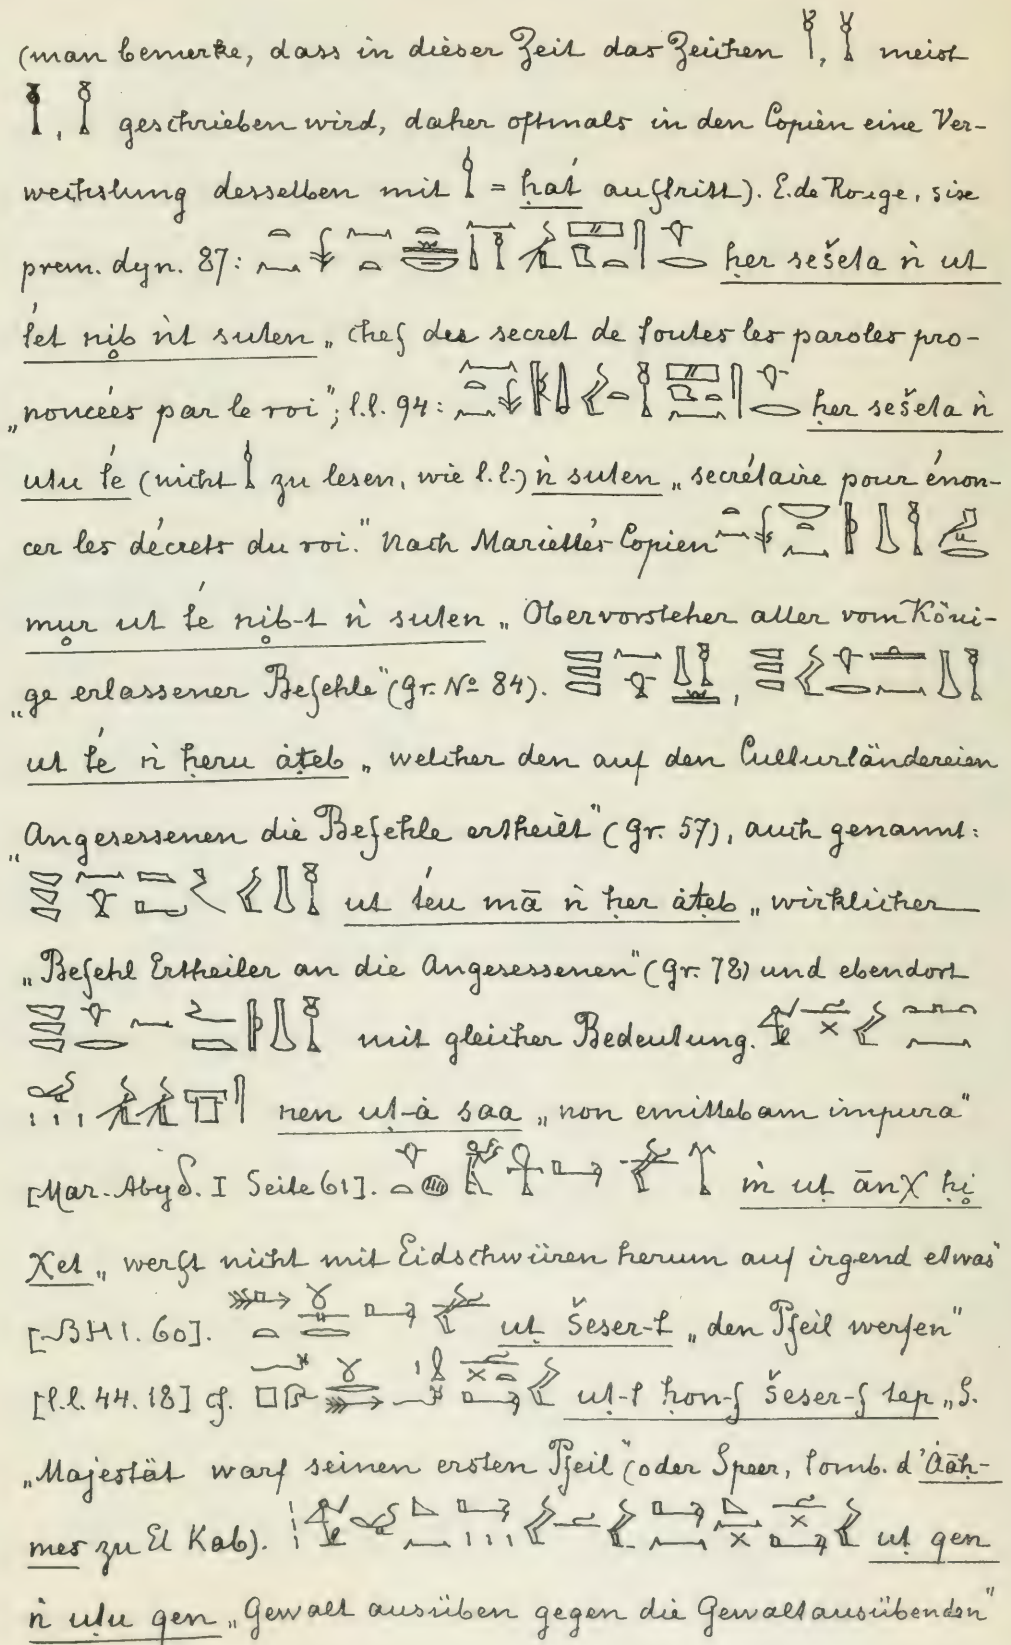 (man bemerke, dass in dieser Zeit das Zeichen , meist
, geschrieben wird, daher oftmals in den Copien eine Ver-
wechslung desselben mit = ḥat́ auftritt). E. de Rouge, six
prem. dyn. 87: ḥer sešeta ǹ ut
t́et nib ǹt suten „chef des secret de toutes les paroles pro-
„noncées par le roi”; l.l. 94: ḥer sešeta ǹ
utu t́e (nicht zu lesen, wie l.l.) ǹ suten „secrétaire pour énon-
cer les décrets du roi.” Nach Mariette's Copien
mur ut t́e nib-t ǹ suten „Obervorsteher aller vom Köni-
„ge erlassener Befehle” (Gr. No 84). ,
ut t́e ǹ ḥeru áṭeb „welcher den auf den Culturländereien
„Angesessenen die Befehle ertheilt” (Gr. 57), auch genannt:
ut t́eu mā ǹ ḥer áṭeb „wirklicher
„Befehl Ertheiler an die Angesessenen” (Gr. 78) und ebendort
mit gleicher Bedeutung.
nen uṭ-à saa „non emittebam impura”
[Mar. Abyd. I Seite 61]. ḿ uṭ ānχ ḥi
χet „werft nicht mit Eidschwüren herum auf irgend etwas”
[BH 1. 60]. uṭ šeser-t „den Pfeil werfen”
[l.l. 44. 18] cf. uṭ-t ḥon-f šeser-f tep „S.
„Majestät warf seinen ersten Pfeil” (oder Speer, tomb. d'Àāḥ-
mes zu El Kab). uṭ qen
ǹ uṭu qen „Gewalt ausüben gegen die Gewaltausübenden”